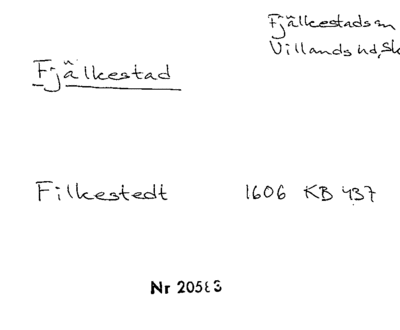 Fjälkestads sn
Villands hd, Sk
Fjälkestad
Filkestedt 1606 KB 437
Nr 20583